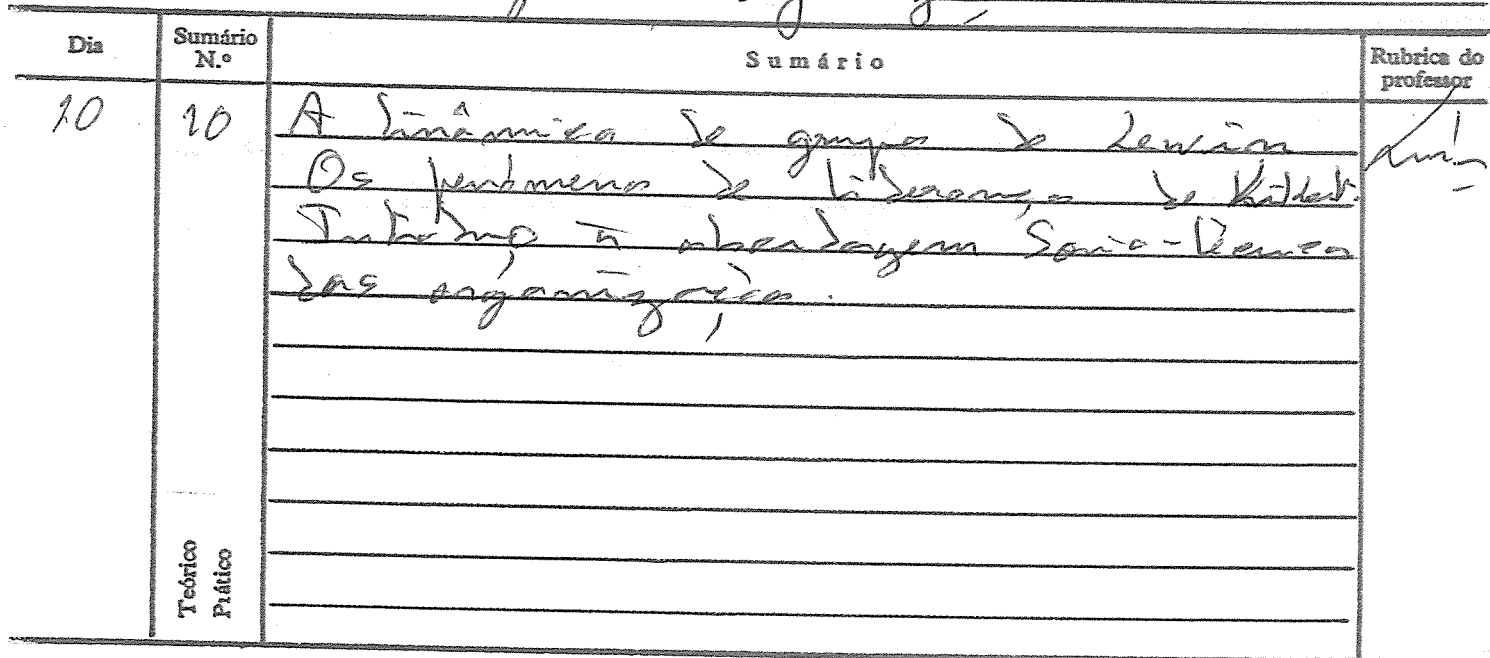 Dia Sumário N.º Sumário Rubrica do professor
10 10 A dinâmica de grupos de Lewin
Os fenómenos de liderança de
Introdução à abordagem Sócio-técnica
das organizações.
Teórico
Prático